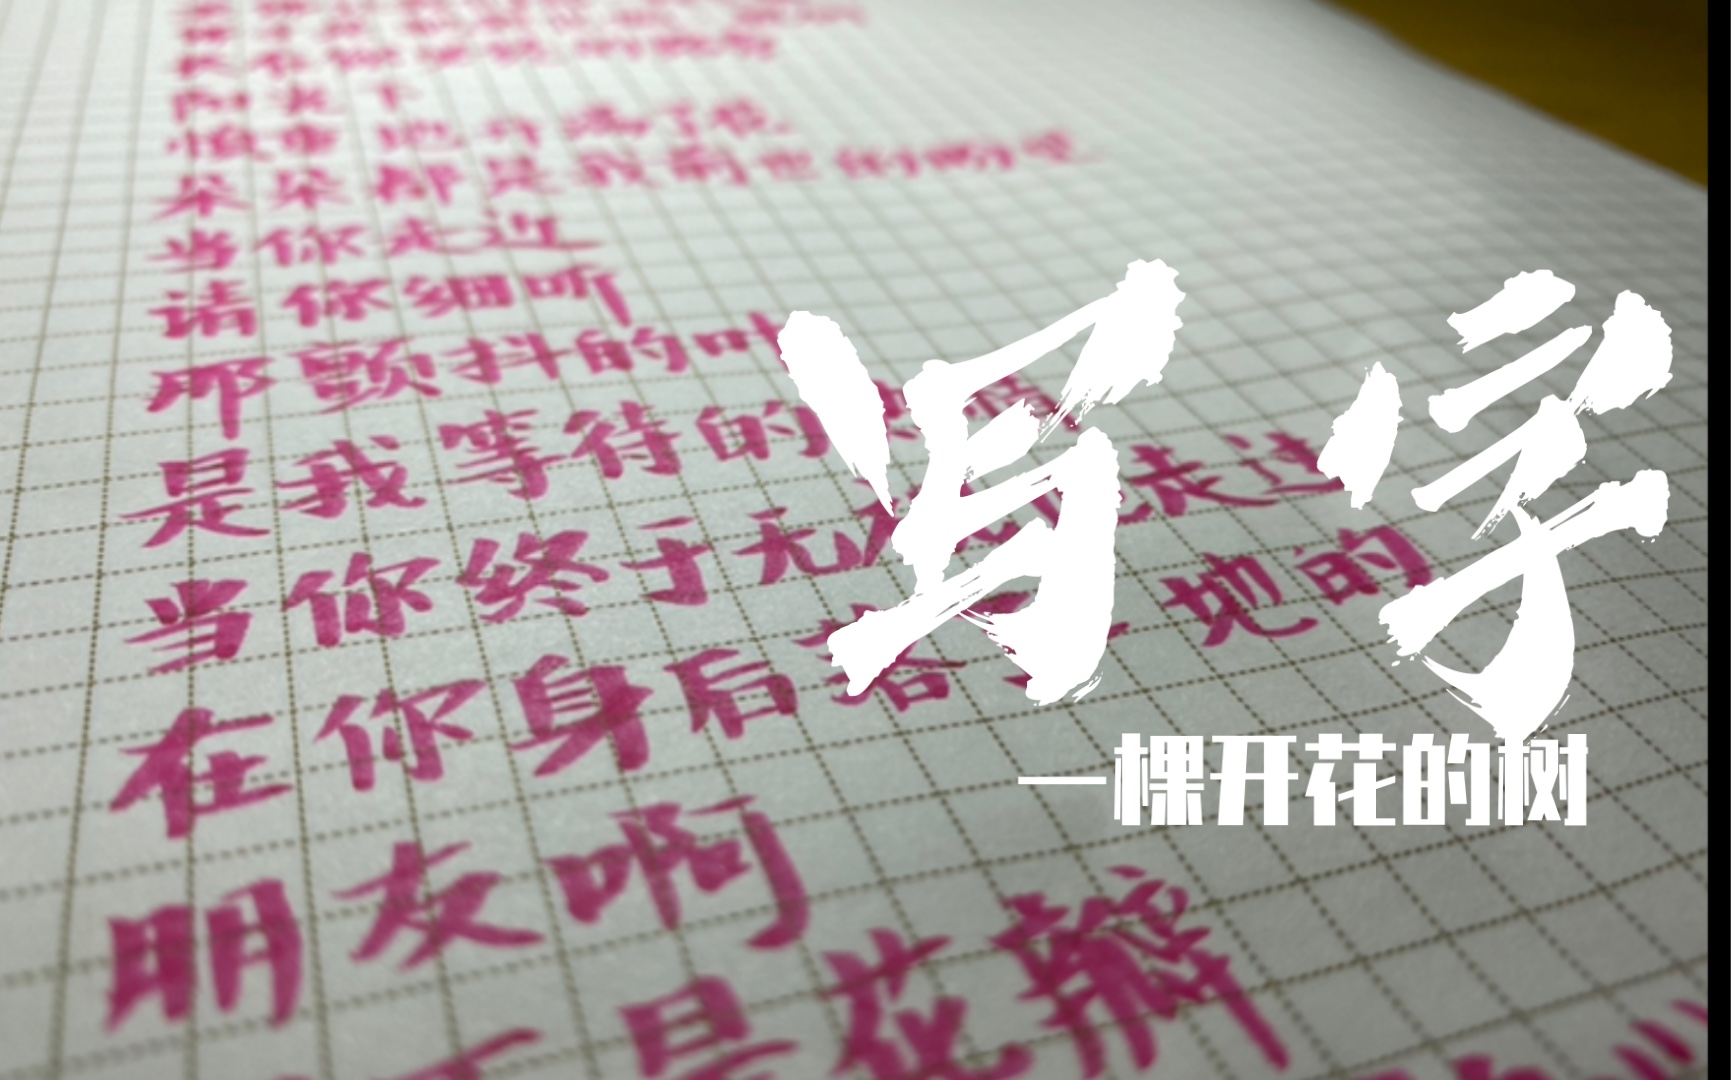 阳光下
慎重地开满了花
朵朵都是我前世的盼望
当你走近
请你细听
那颤抖的叶
是我等待的热情
当你终于无视地走过
在你身后落了一地的
朋友啊
是花瓣
写字
一棵开花的树